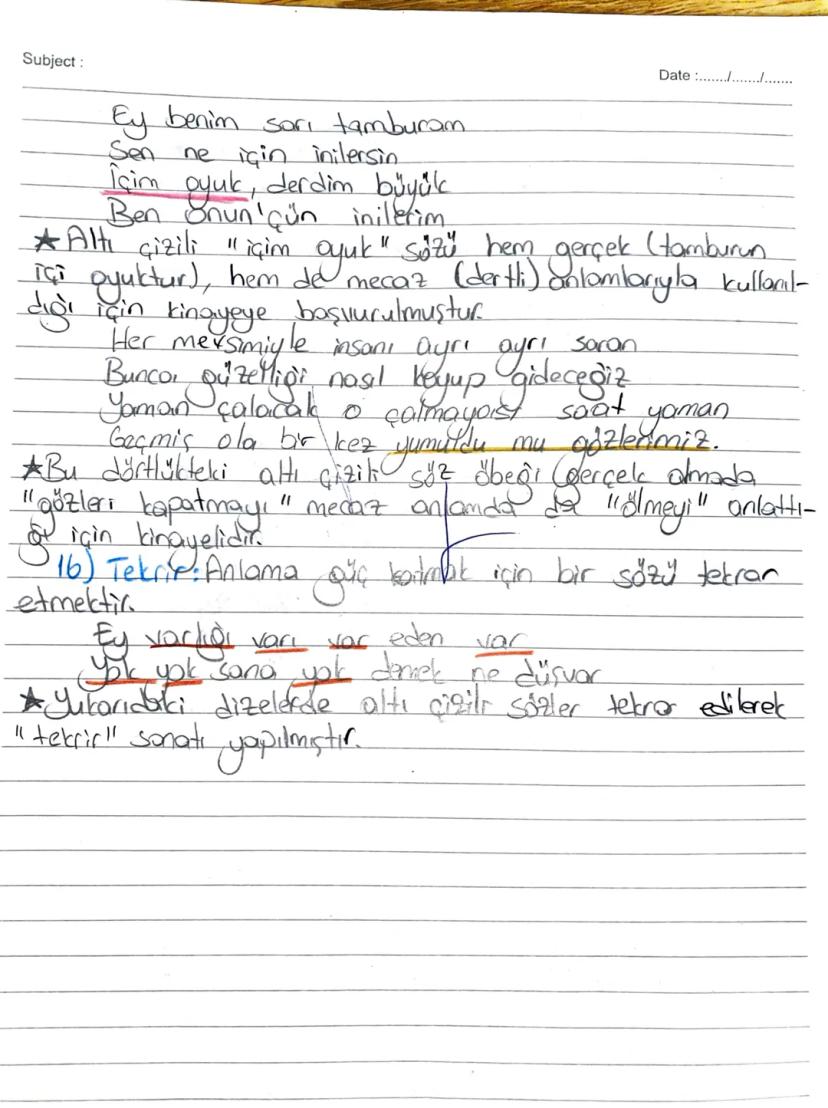 Subject :
Date :......./......./.......
Ey benim sarı tamburam
Sen ne için inilersin
İçim oyuk, derdim büyük
Ben onun'çün inilerim
★ Altı çizili "içim oyuk" sözü hem gerçek (tamburun
içi oyuktur), hem de mecaz (dertli) anlamlarıyla kullanıl-
dığı için kinayeye başvurulmuştur.
Her mevsimiyle insanı ayrı ayrı saran
Bunca güzelliği nasıl koyup gideceğiz
Yaman çalacak o çalmayası saat yaman
Geçmiş ola bir kez yumuldu mu gözlerimiz.
★ Bu dörtlükteki altı çizili söz öbeği gerçek almada
"gözleri kapatmayı" mecaz anlamda da "ölmeyi" anlattı-
ğı için kinayelidir.
16) Tekrir: Anlama güç katmak için bir sözü tekrar
etmektir.
Ey varlığı varı var eden var
Yok yok sana yok demek ne düşvar
★ Yukarıdaki dizelerde altı çizili sözler tekrar edilerek
"tekrir" sanatı yapılmıştır.